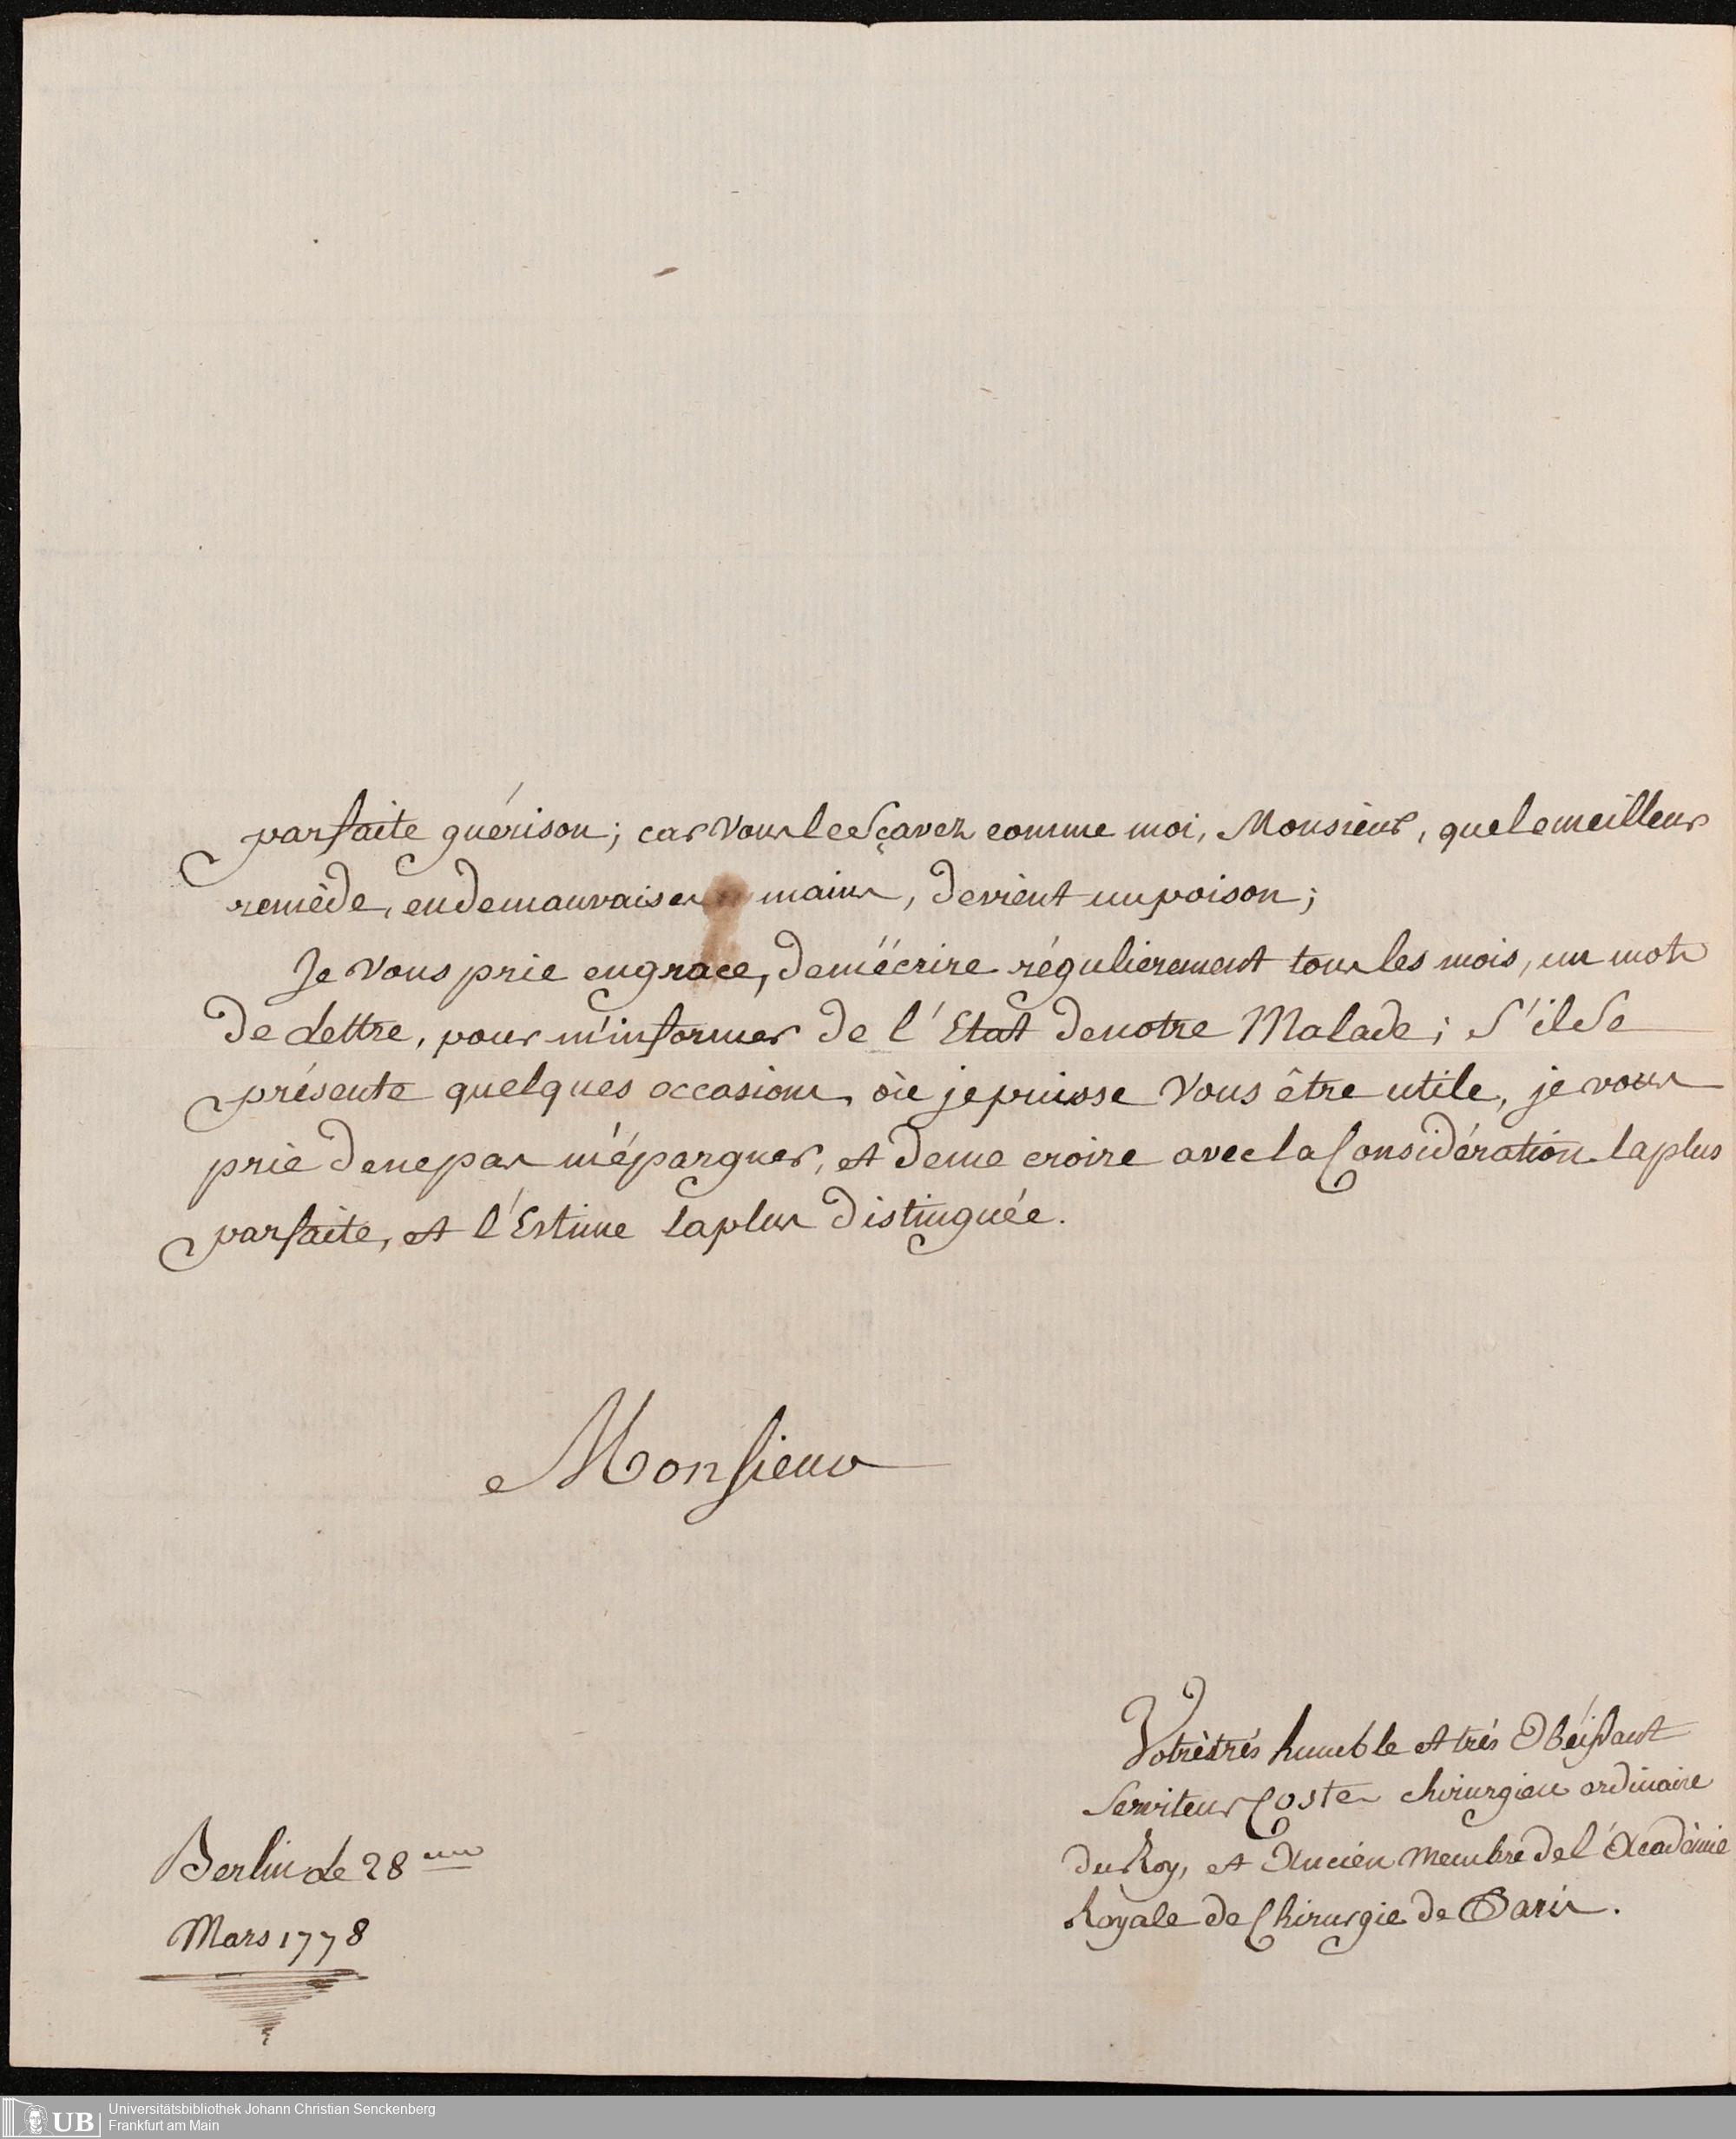 parfaite guérison; car vous le sçavez comme moi, Monsieur, que le meilleur
remède, en de mauvaises mains, devient un poison;
Je vous prie en grace, de m'écrire régulierement tous les mois, un mot
de Lettre, pour m'informer de l'Etat de notre Malade; s'il se
présente quelques occasions, où je puisse vous être utile, je vous
prie de ne pas m'épargner, et de me croire avec la Considération la plus
parfaite, et l'Estime la plus distinguée.
Monsieur
Votre trés humble et trés Obéissant
Serviteur Coste chirurgien ordinaire
du Roy, et Ancien Membre de l'Académie
Royale de Chirurgie de Paris.
Berlin le 28 me
Mars 1778
UB Universitätsbibliothek Johann Christian Senckenberg
Frankfurt am Main